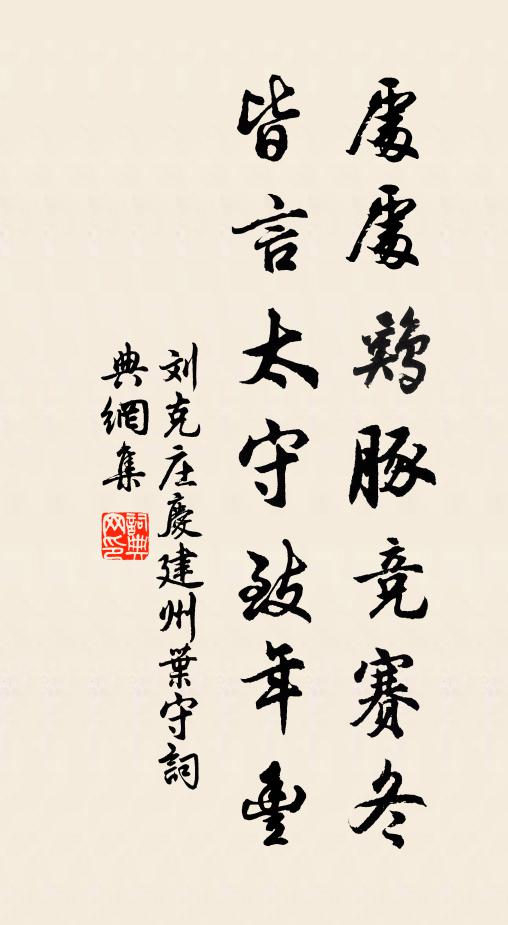 處處鷄豚竞赛冬
皆言太守致年豊
刘克庄慶建州葉守詞
典網集
詞典
网印